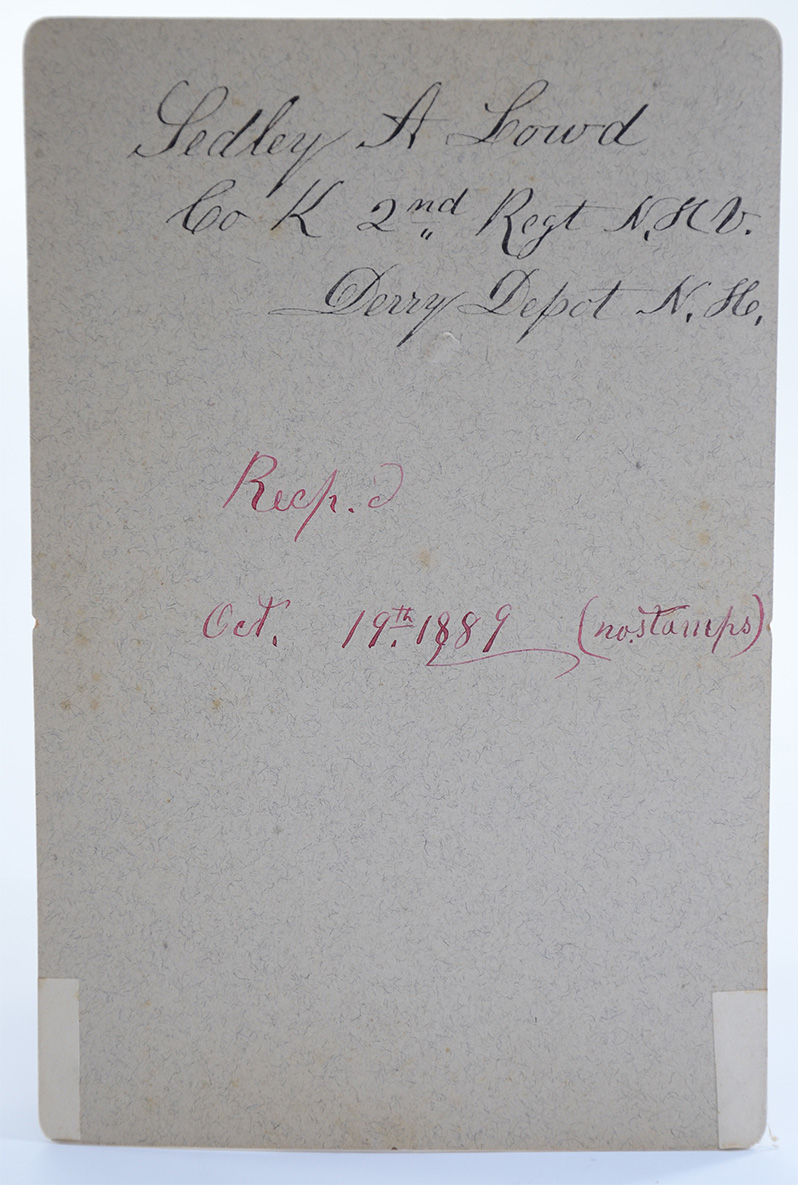 Sedley A Lowd
Co K 2nd Regt N.H.V.
Derry Depot N.H.
Recp.d
Oct. 19th. 1889 (no.stamps)